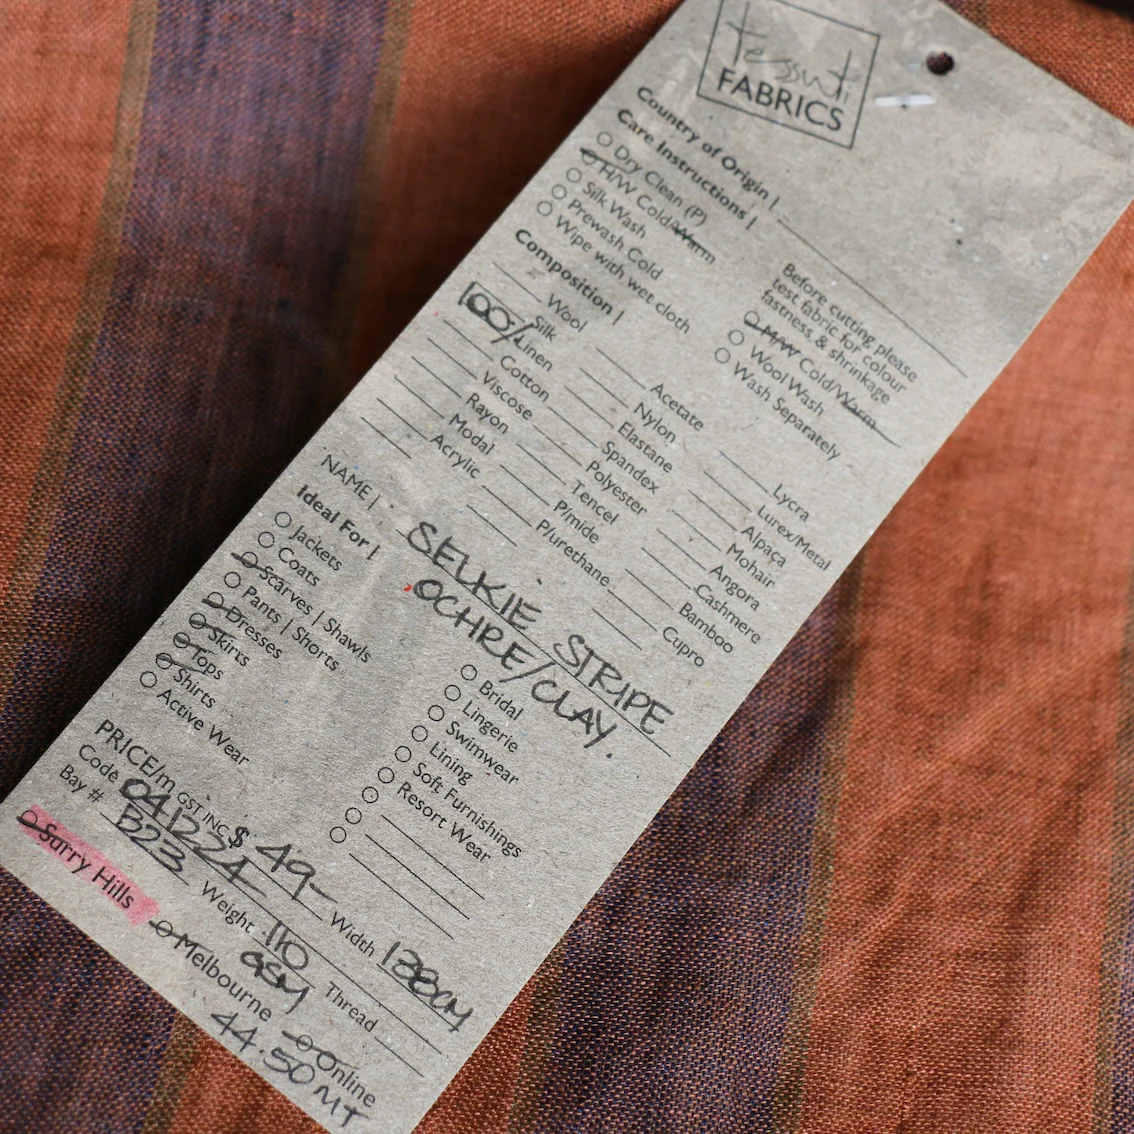 tessuti
FABRICS
Country of Origin |
Care Instructions |
Dry Clean (P)
H/W Cold/Warm
Silk Wash
Prewash Cold
Wipe with wet cloth
Before cutting please
test fabric for colour
fastness & shrinkage
M/W Cold/Warm
Wool Wash
Wash Separately
Composition |
Wool
Silk
100% Linen
Cotton
Viscose
Rayon
Modal
Acrylic
Acetate
Nylon
Elastane
Spandex
Polyester
Tencel
P/mide
P/urethane
Lycra
Lurex/Metal
Alpaca
Mohair
Angora
Cashmere
Bamboo
Cupro
NAME | SELKIE STRIPE
OCHRE/CLAY.
Ideal For |
Jackets
Coats
Scarves | Shawls
Pants | Shorts
Dresses
Skirts
Tops
Shirts
Active Wear
Bridal
Lingerie
Swimwear
Lining
Soft Furnishings
Resort Wear
PRICE/m GST INC $ 49-
Code 041224
Width 138cm
Bay # B23
Weight 110 GSM
Thread
Surry Hills
Melbourne
Online
44.50MT